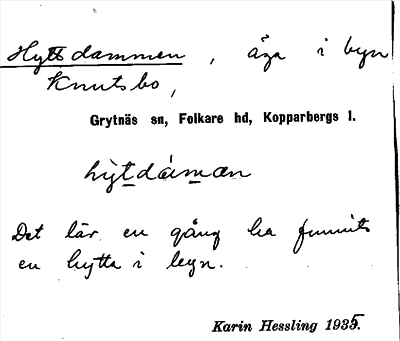 Hyttdammen, äga i byn
Knutsbo,
Grytnäs sn, Folkare hd, Kopparbergs l.
hỳtdáman
Det lär en gång ha funnits
en hytta i byn.
Karin Hessling 1935.